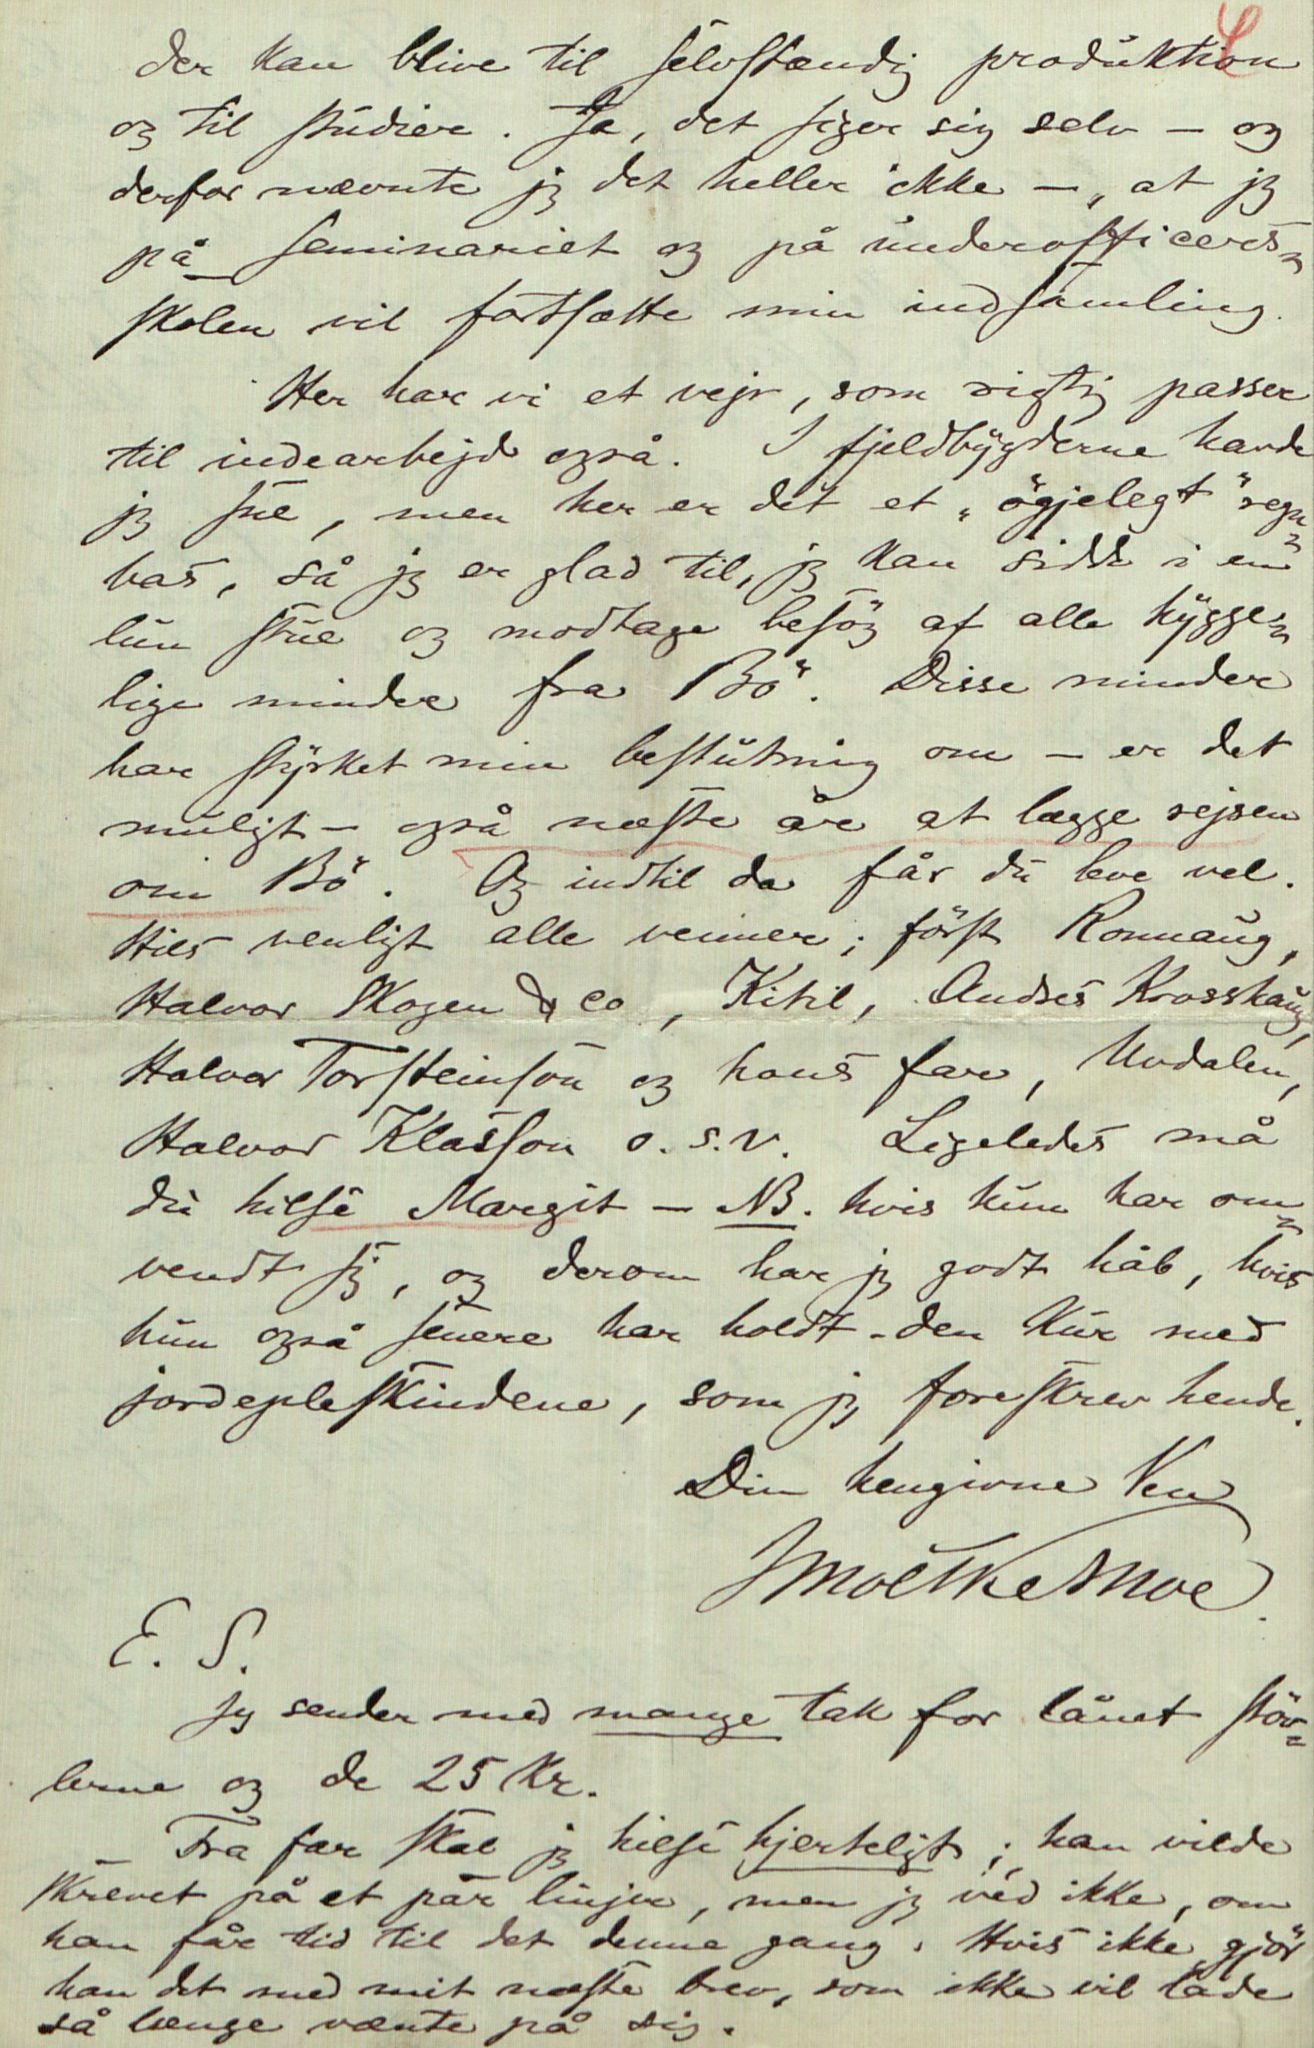 der kan blive til selvstændig produktion
og til studier. Ja, det siger sig selv — og
derfor nævnte jeg det heller ikke —, at jeg
på seminariet og på underofficers=
skolen vil fortsætte min indsamling.
Her har vi et vejr, som rigtig passer
til indearbejde også. I fjeldbygderne havde
jeg sne, men her er det et "ögjelegt" regn=
has, så jeg er glad til, jeg kan sidde i en
lun stue og modtage besög af alle hygge=
lige minder fra Bö. Disse minder
har styrket min beslutning om — er det
muligt — også næste år at lægge rejsen
om Bö. Og indtil da får du leve vel.
Hils venligt alle venner; först Ronnaug,
Halvor Skogen & co, Kitil, Andres Krosshaug,
Halvor Torsteinson og hans far, Uvdalen,
Halvor Klasson o.s.v. Ligeledes må
du hilse Margit — NB. hvis hun har om=
vendt sig, og derom har jeg godt håb, hvis
hun også senere har holdt den kur med
jordepleskindene, som jeg foreskrev hende.
Din hengivne Ven
Moltke Moe.
E. S.
Jeg sender med mange tak for lånet stöv=
lerne og de 25 Kr.
Fra far skal jeg hilse hjerteligt; han vilde
skrevet på et par linjer, men jeg véd ikke, om
han får tid til det denne gang. Hvis ikke gjör
han det med mit næste brev, som ikke vil lade
så længe vænte på sig.